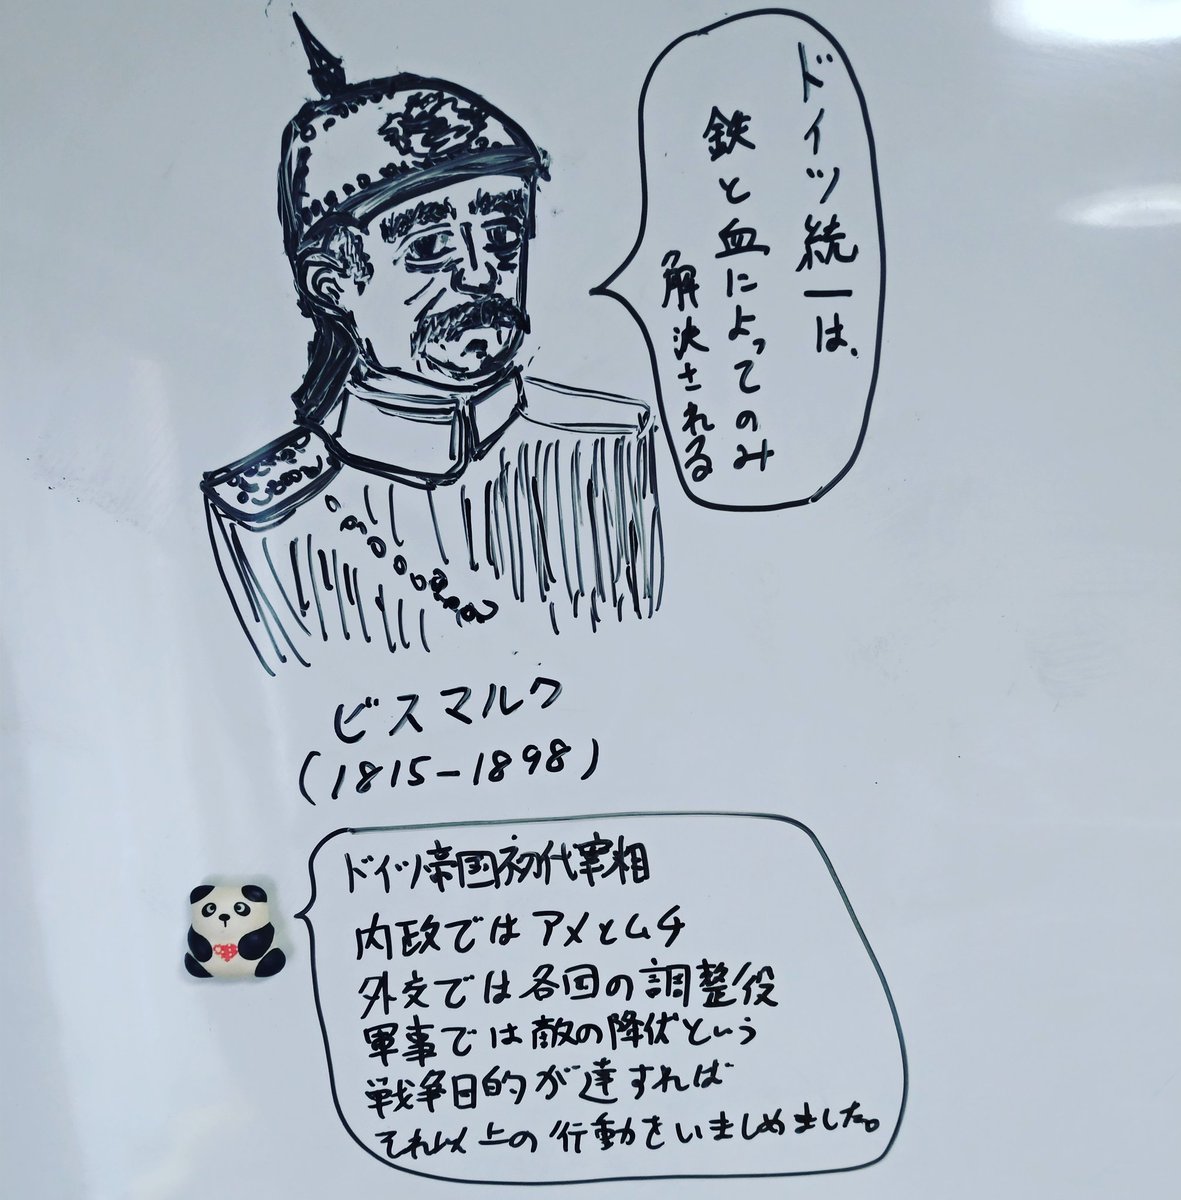 ドイツ統一は、
鉄と血によってのみ
解決される
ビスマルク
(1815-1898)
ドイツ帝国初代宰相
内政ではアメとムチ
外交では各国の調整役
軍事では敵の降伏という
戦争目的が達すれば
それ以上の行動をいましめました。